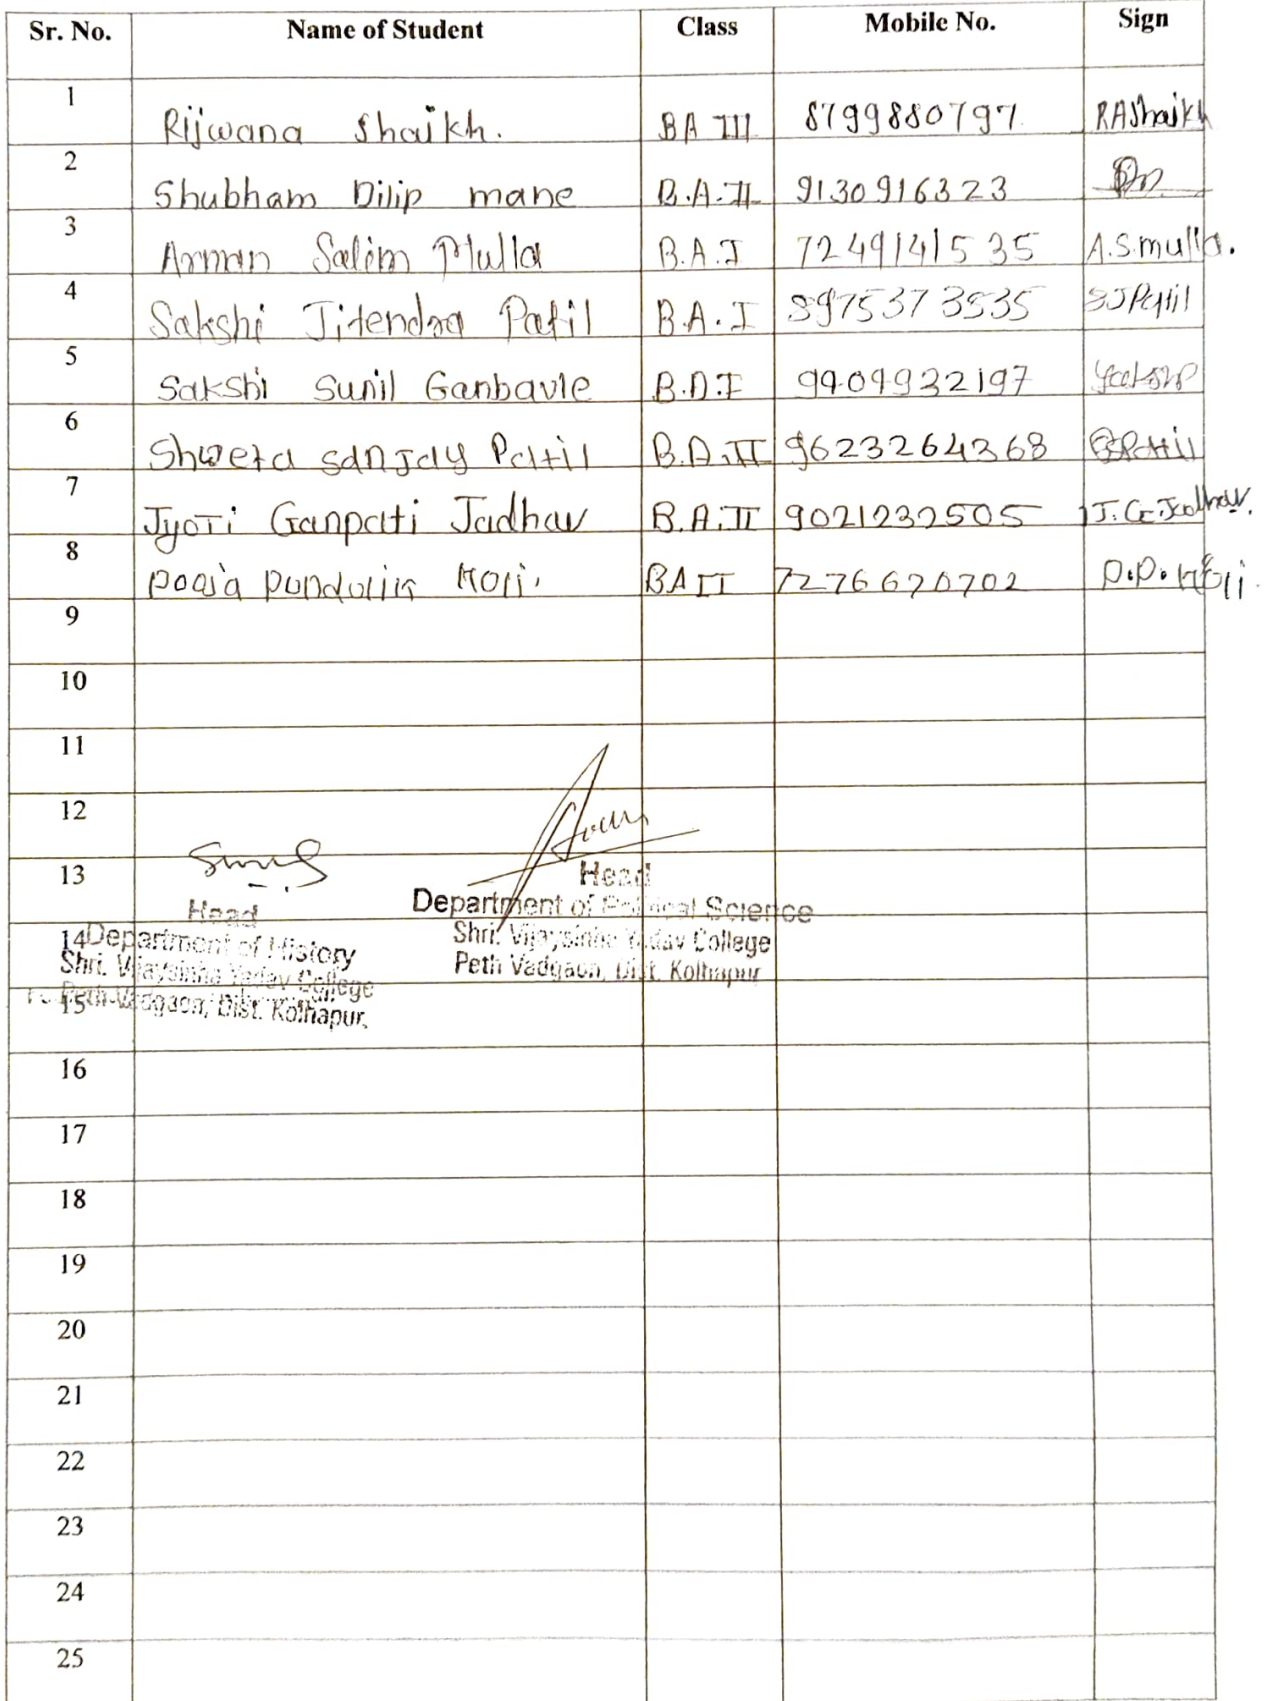 Sr. No. Name of Student Class Mobile No. Sign
1 Rijwana Shaikh. BA III 8799880797 RAShaikh
2 Shubham Dilip mane B.A.II 9130916323
3 Arman Salim Mulla B.A.I 7249141535 A.S.mulla.
4 Sakshi Jitendra Patil B.A.I 8975373535 SJPatil
5 Sakshi Sunil Ganbavle B.A.I 9909932197
6 Shweta sanjay Patil B.A.II 9623264368 SSPatil
7 Jyoti Ganpati Jadhav B.A.II 9021232505 J.G.Jadhav.
8 pooja pundalik Koli. BA II 7276670702 p.p.koli
9
10
11
12
13
Head
Department of Political Science
Shri. Vijaysinha Yadav College
Peth Vadgaon, Dist. Kolhapur
Head
14 Department of History
Shri. Vijaysinha Yadav College
15 Peth-Vadgaon, Dist. Kolhapur.
16
17
18
19
20
21
22
23
24
25